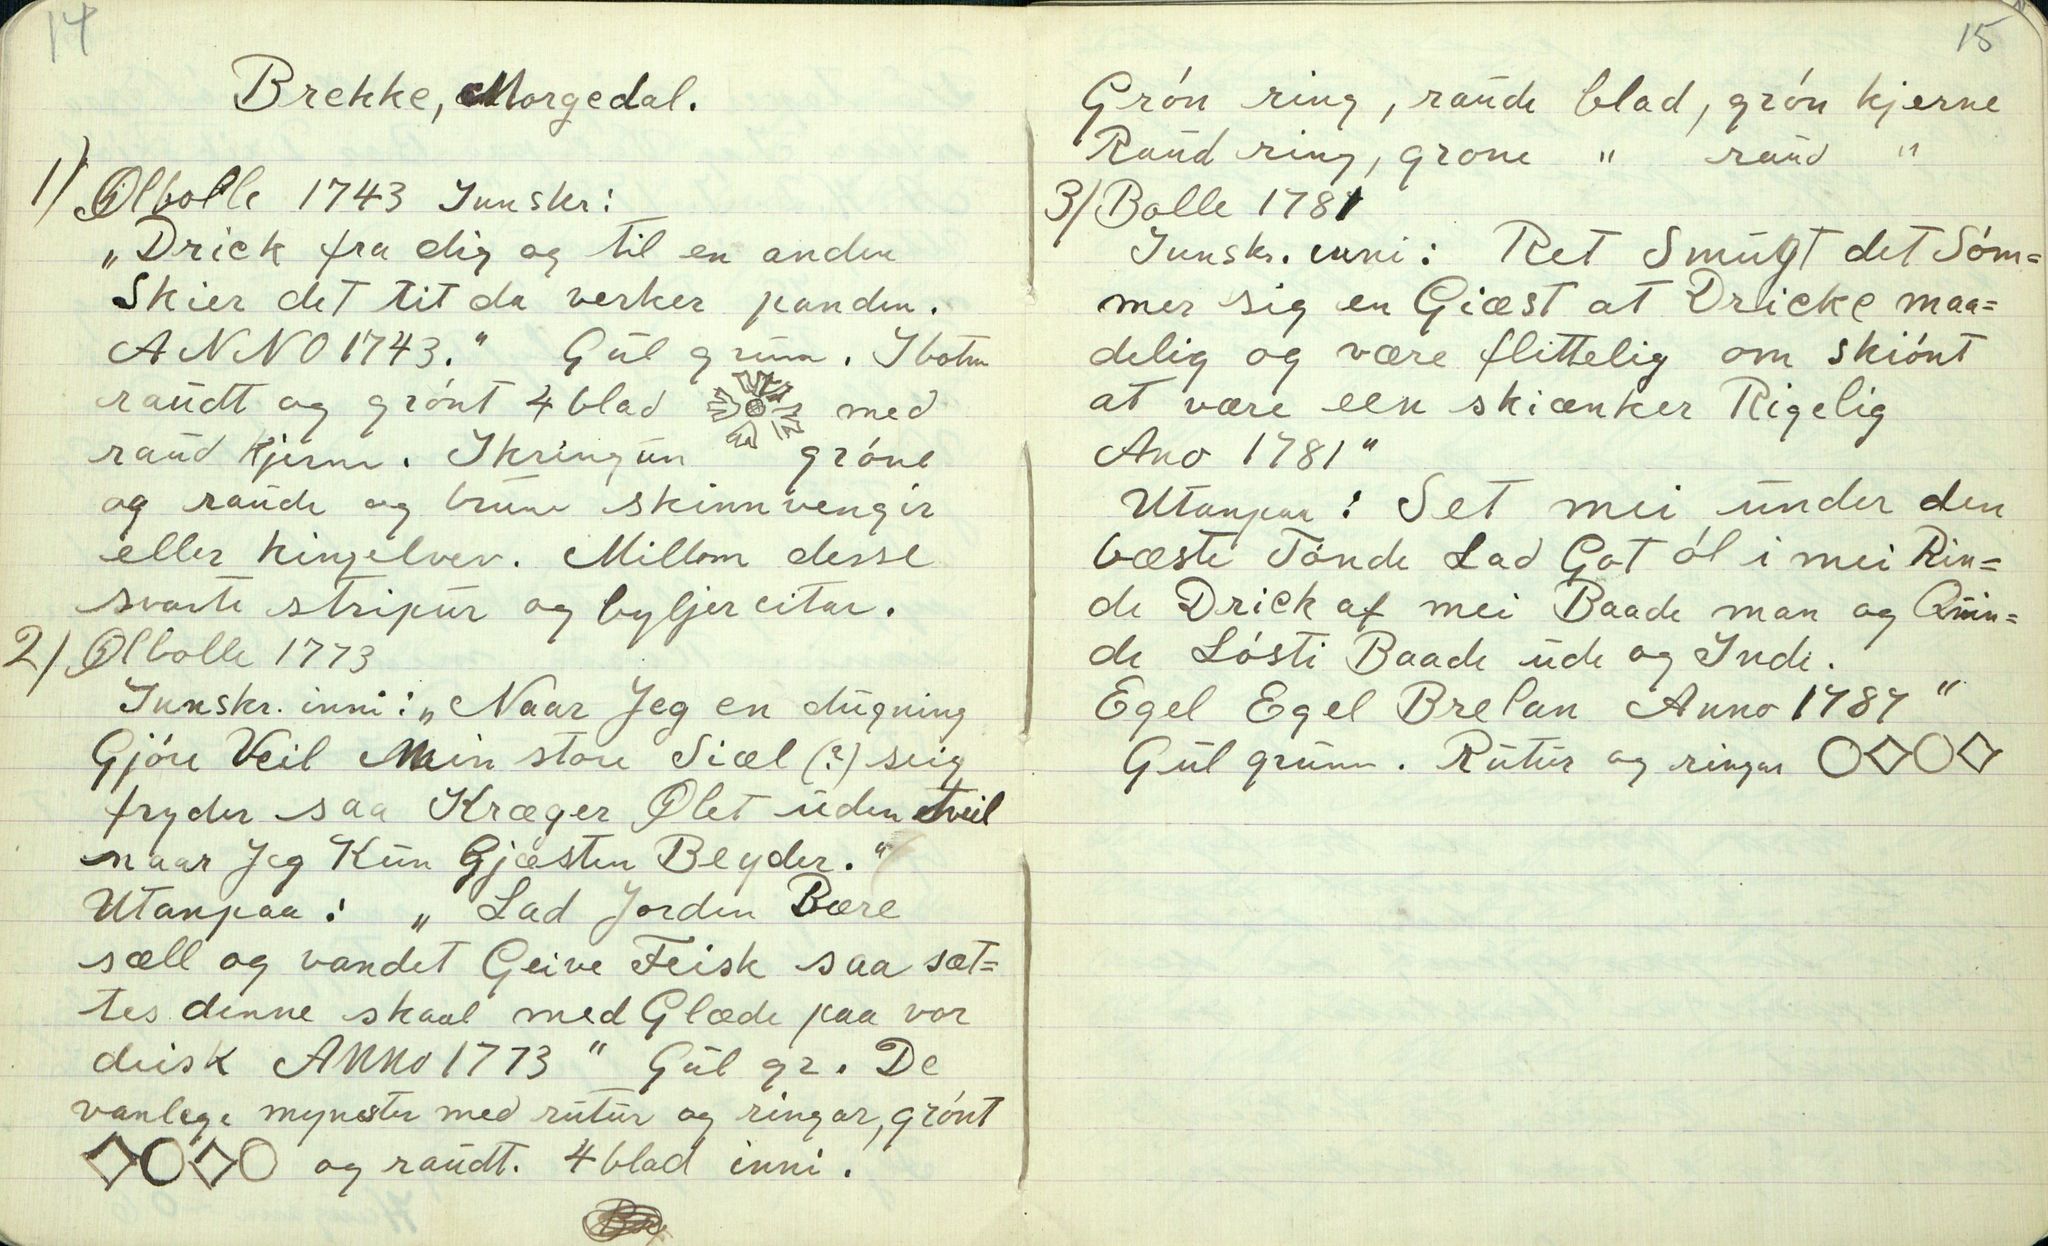 14
Brekke, Morgedal.
1) Ølbolle 1743 Innskr:
„Drick fra dig og til en anden
Skier det tit da verker panden.
ANNO 1743.“ Gul grunn. I botn
raudt og grónt 4 blad med
raud kjerne. Ikringun gróne
og raude og brune skinnvengir
eller kingelvev. Millom desse
svarte stripur og bylgjer eitar.
2) Ølbolle 1773
Innskr. inni: „Naar Jeg en dugning
Gjóre Veil Min store Siæl (?) seig
fryder saa Kræger Ølet uden tveil
naar Jeg Kun Gjæsten Beyder.“
Utanpaa: „Lad Jorden Bære
sæll og vandet Geive Feisk saa sæt=
tes denne skaal med Glæde paa vor
deisk ANNO 1773“ Gul gr. De
vanlege mynster med rutur og ringar, grónt
og raudt. 4 blad inni.
15
Grón ring, raude blad, grón kjerne
Raud ring, grone " raud "
3) Bolle 1781
Innsk. inni: Ret Smugt det Sóm=
mer sig en Giæst at Dricke maa=
delig og være flittelig om skiónt
at være een skiænker Rigelig
Ano 1781“
Utanpaa: Set mei under den
bæste Tónde Lad Got ól i mei Rin=
de Drick af mei Baade man og Quin=
de Lósti Baade ude og Inde.
Egel Egel Brelan Anno 1787“
Gul grunn. Rutur og ringar